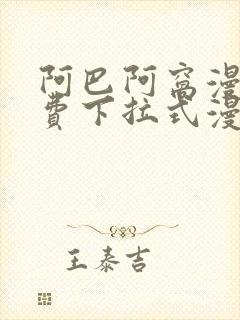 阿巴阿窝漫
费下拉式漫
王泰吉